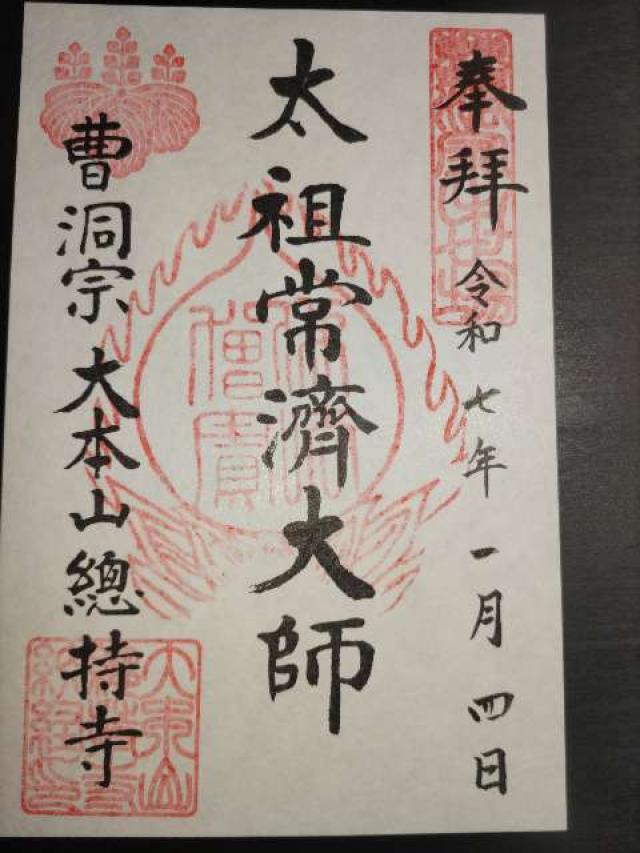 奉拝 令和七年一月四日
太祖常濟大師
曹洞宗大本山總持寺